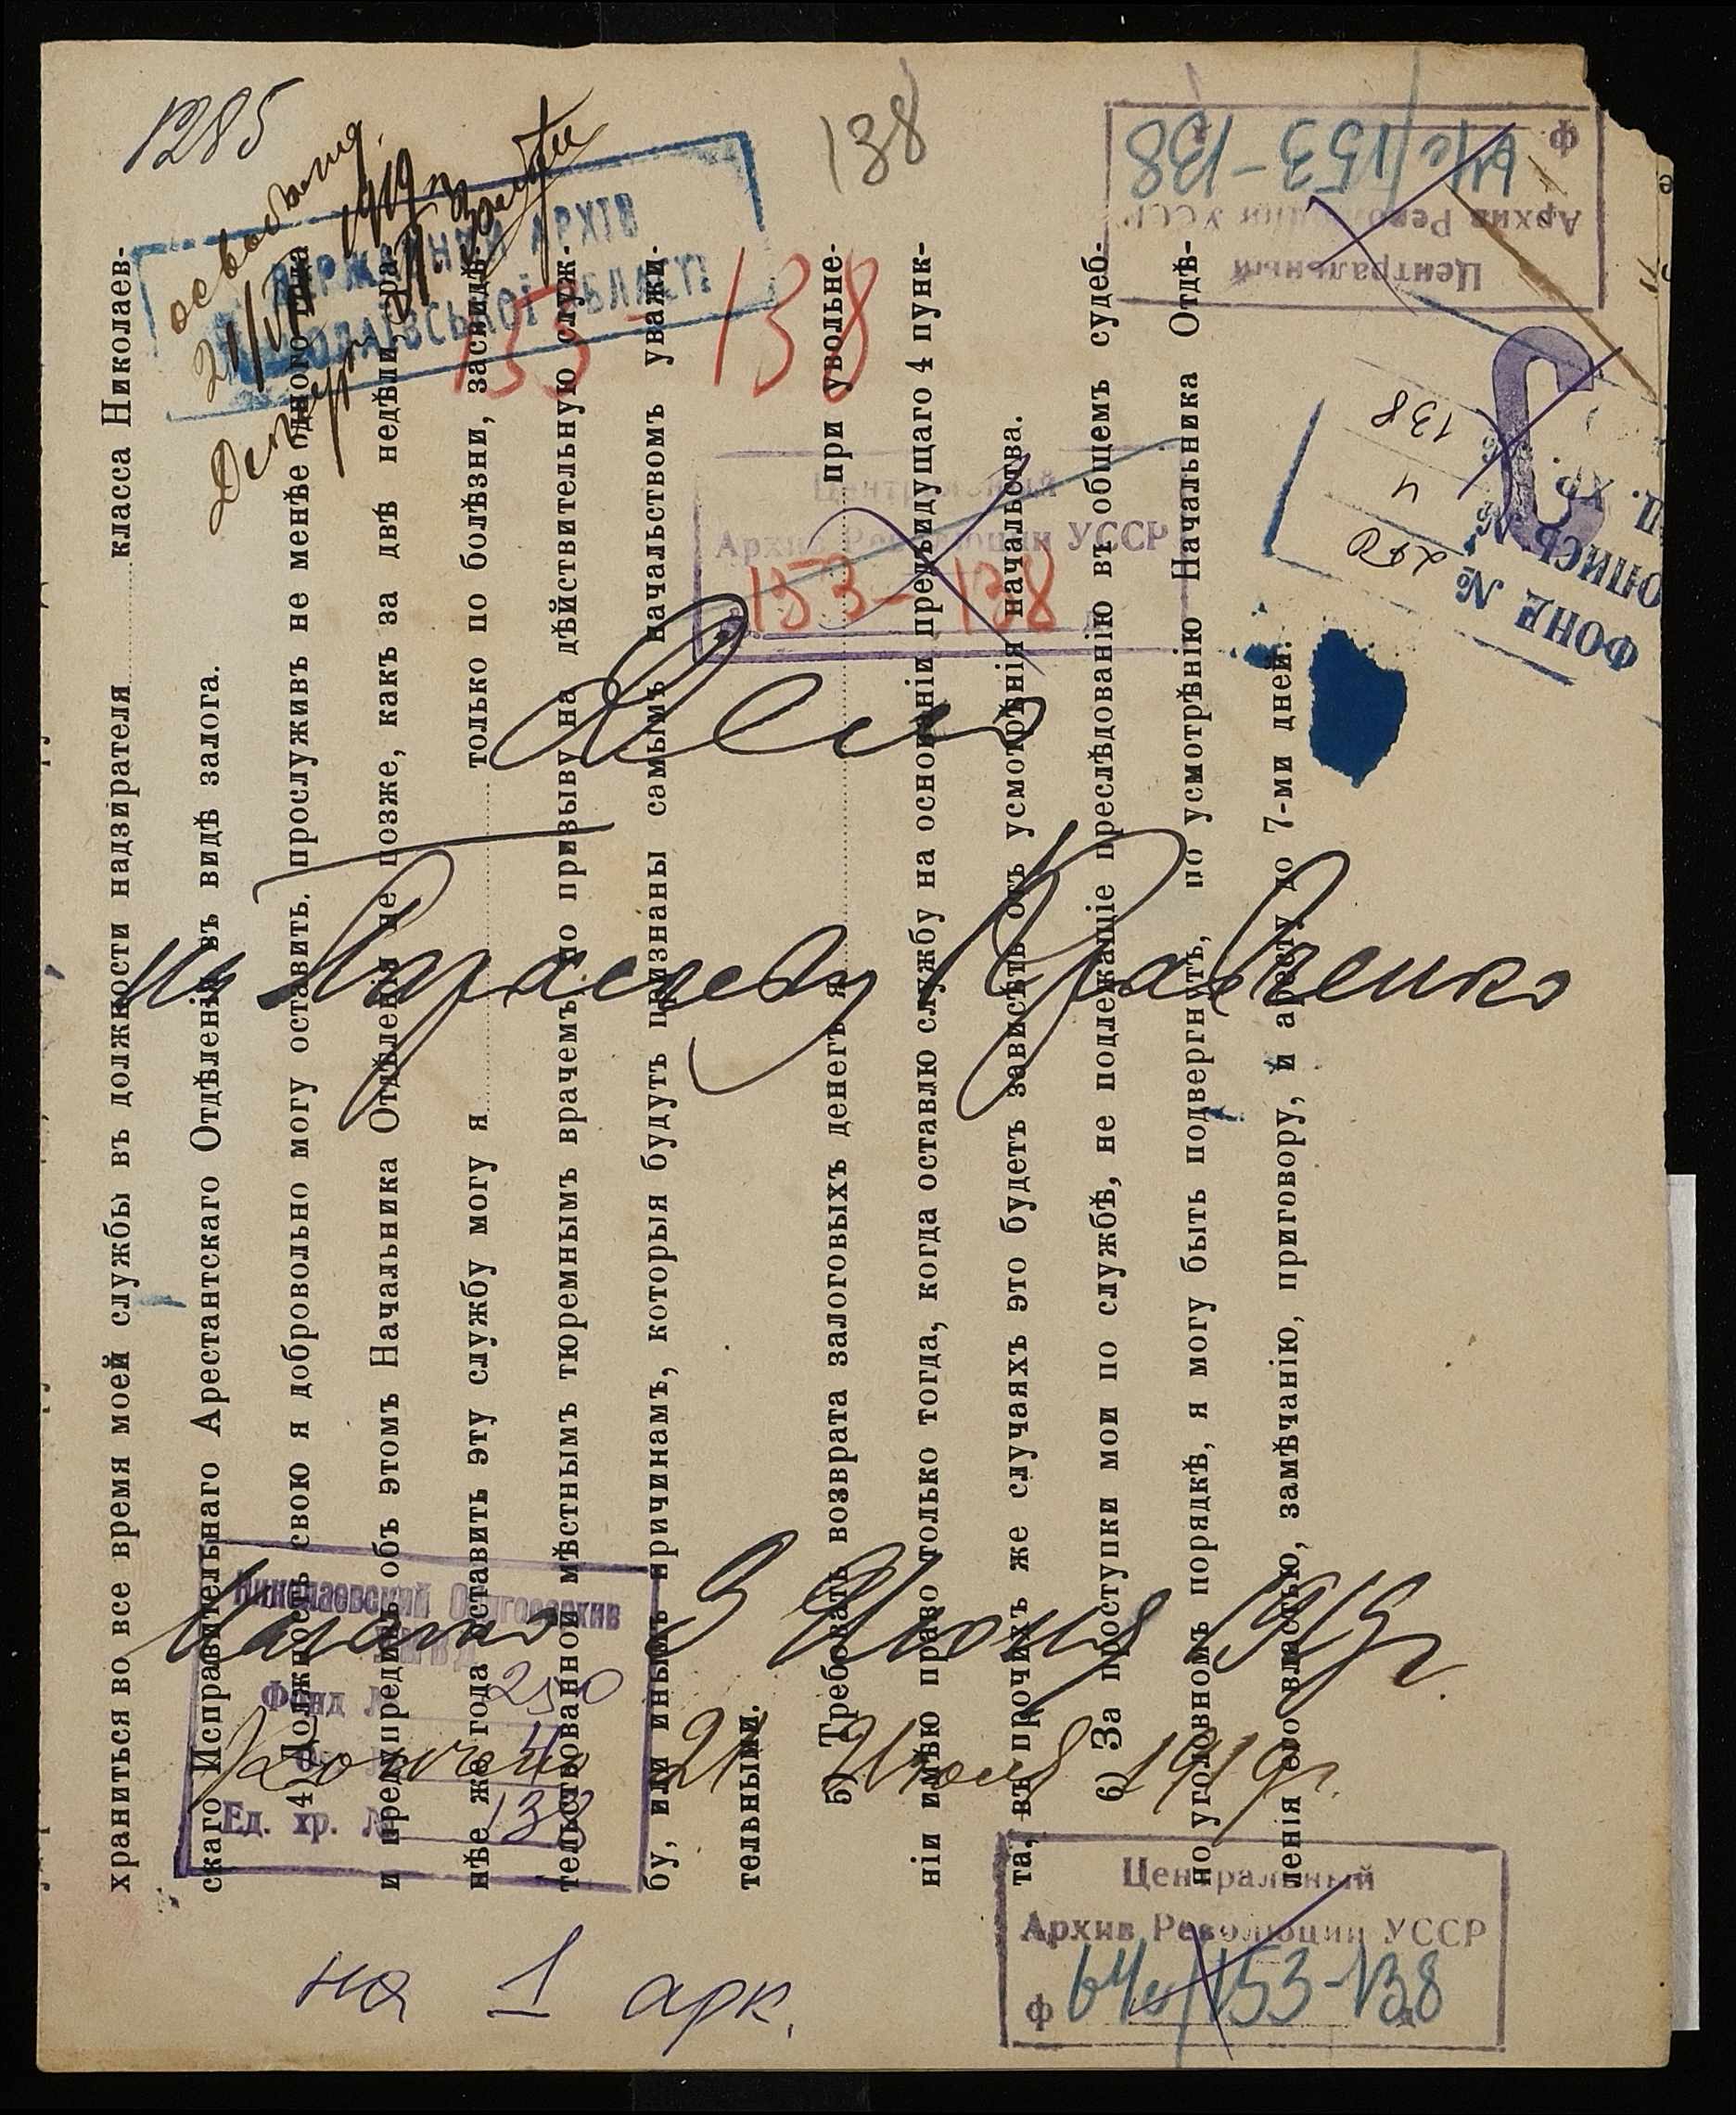 1285
освобожд.
21/VI 1919 г.
138
ДЕРЖАВНИЙ АРХІВ
МИКОЛАЇВСЬКОЇ ОБЛАСТІ
153-138
Центральный
Архив Революции УССР
Ф
64с/153-138
ФОНД № 250
ОПИСЬ № 4
ЕД. ХР. № 138
Центральный
Архив Революции УССР
153-138
Дело
на Параскеву Кравченко
Начато 9 Июня 1919 г.
Кончено 21 Июня 1919 г.
Николаевский Облгосархив
УМВД
Фонд № 250
Оп. № 4
Ед. хр. № 138
на 1 арк.
Центральный
Архив Революции УССР
ф 64с/153-138
храниться во все время моей службы въ должности надзирателя класса Николаев-
скаго Исправительнаго Арестантскаго Отдѣленія въ видѣ залога.
4) Должность свою я добровольно могу оставить, прослуживъ не менѣе одного года
и предупредивъ объ этомъ Начальника Отдѣленія не позже, какъ за двѣ недѣли, ра-
нѣе же года оставить эту службу могу я только по болѣзни, засвидѣ-
тельствованной мѣстнымъ тюремнымъ врачемъ, по призыву на дѣйствительную служ-
бу, или инымъ причинамъ, которыя будутъ признаны самымъ начальствомъ уважи-
тельными.
5) Требовать возврата залоговыхъ денегъ я при увольне-
ніи имѣю право только тогда, когда оставлю службу на основаніи предыдущаго 4 пунк-
та, въ прочихъ же случаяхъ это будетъ зависѣть отъ усмотрѣнія начальства.
6) За проступки мои по службѣ, не подлежащіе преслѣдованію въ общемъ судеб-
но уголовномъ порядкѣ, я могу быть подвергнутъ, по усмотрѣнію Начальника Отдѣ-
ленія его властью, замѣчанію, приговору, и аресту до 7-ми дней.